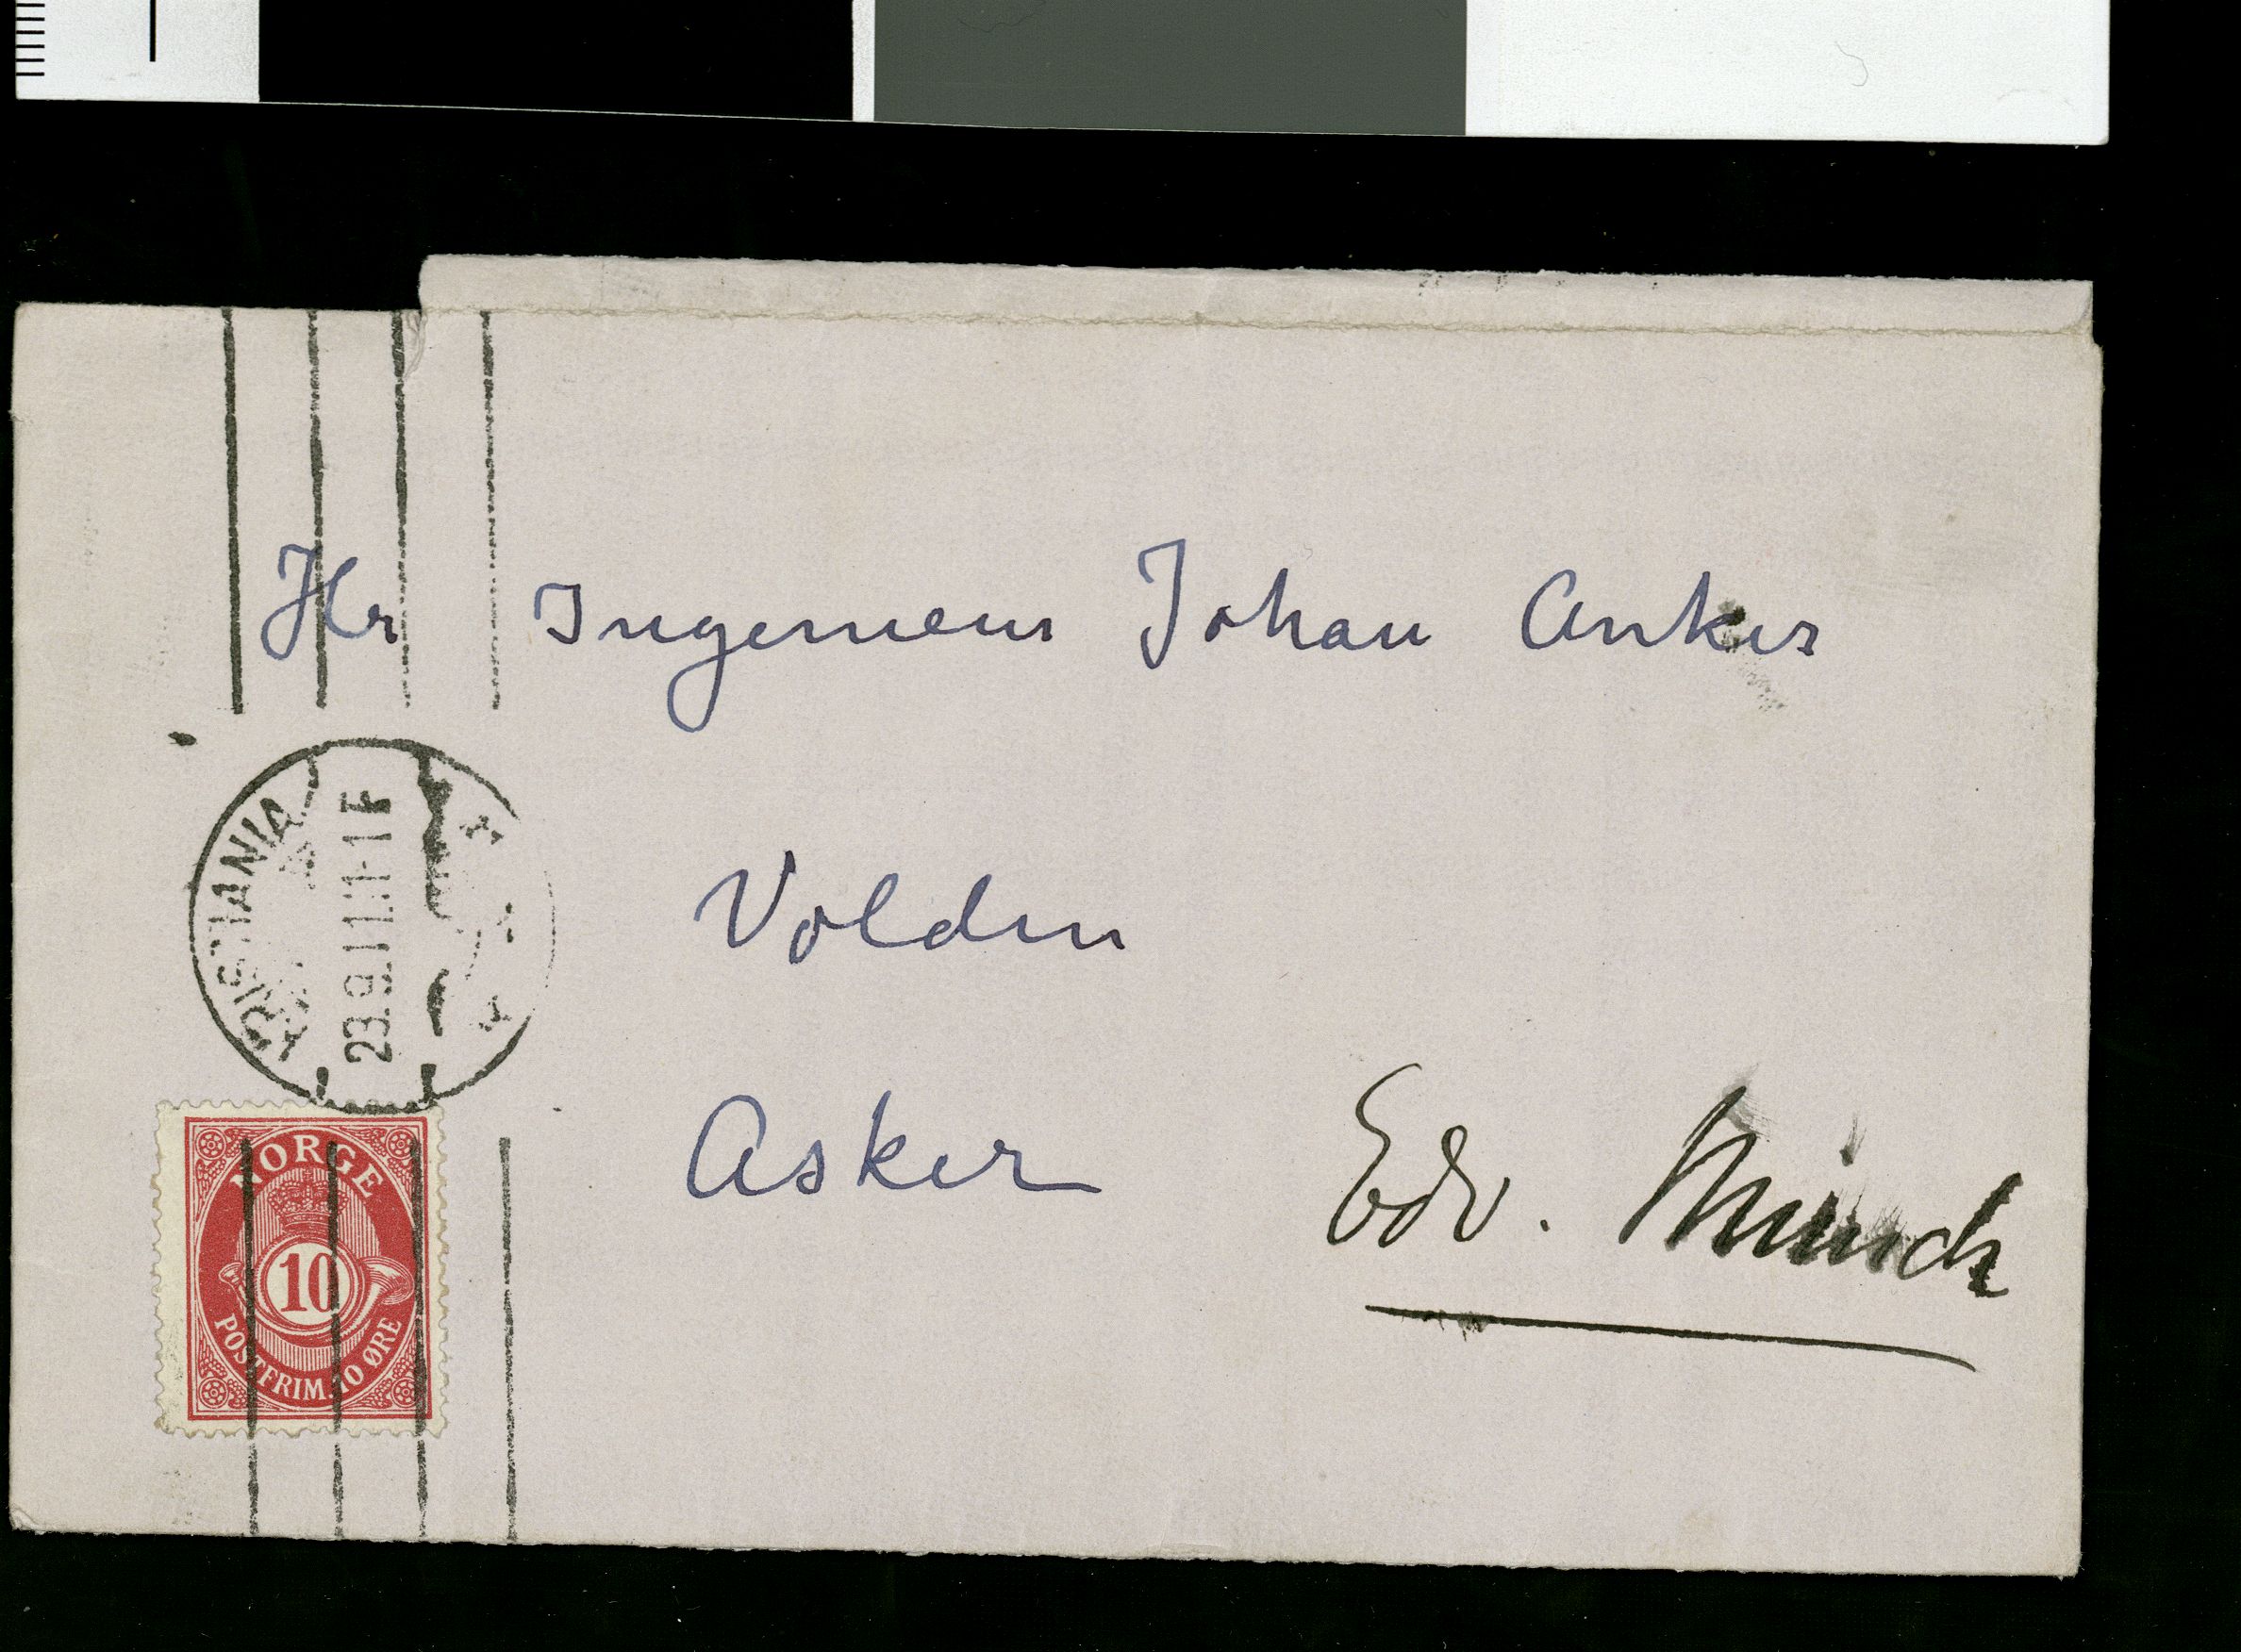 Hr Ingenieur Johan Anker
Volden
Asker
Edv. Munch
KRISTIANIA
23.9.11.1-1F
NORGE
10
POSTFRIM. 10 ØRE